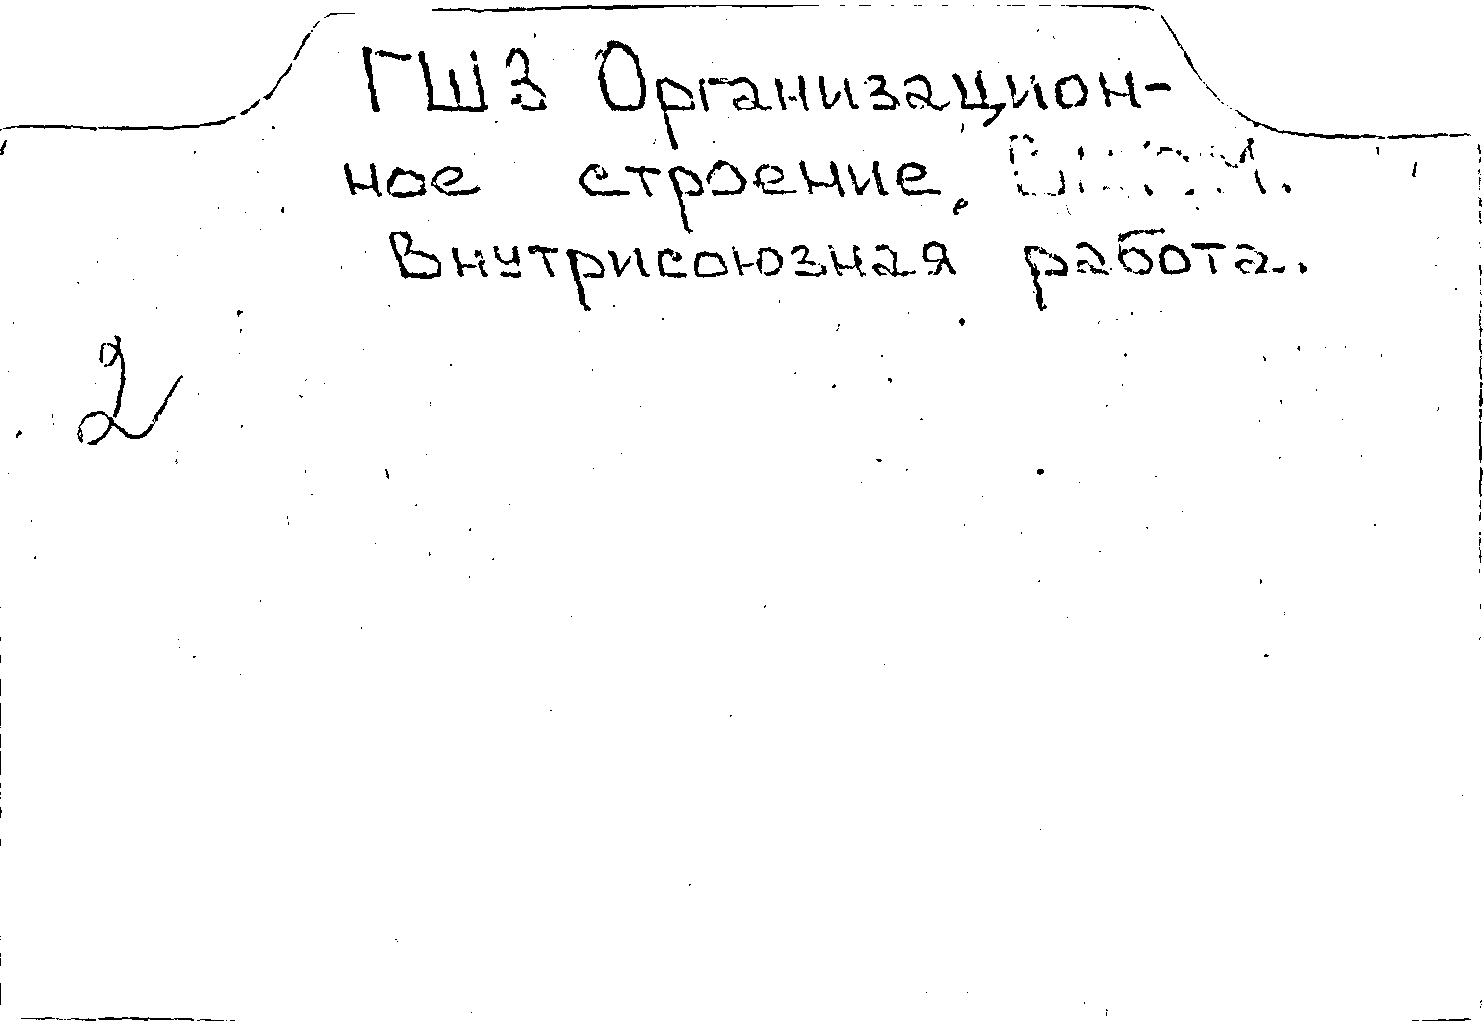 ГШ3 Организацион-
ное строение,
Внутрисоюзная работа.
2